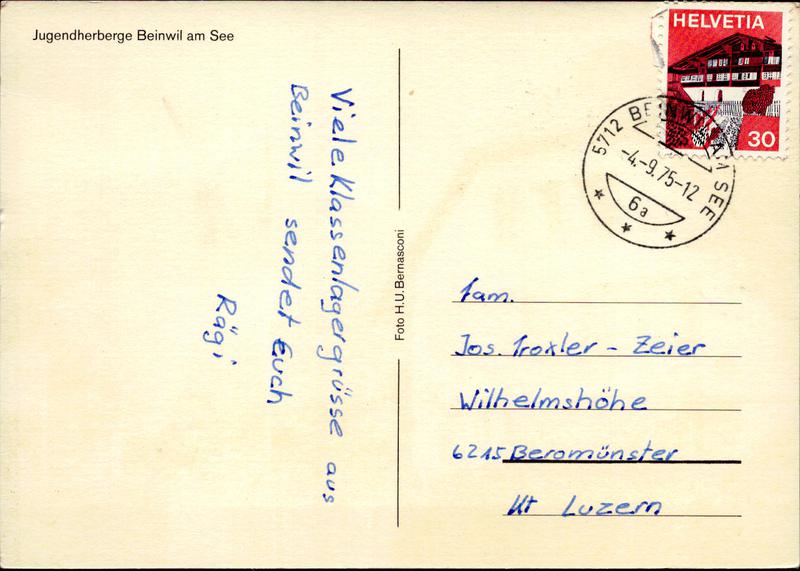 Jugendherberge Beinwil am See
Viele Klassenlagergrüsse aus
Beinwil sendet Euch
Rägi
Foto H.U. Bernasconi
HELVETIA
30
5712 BEINWIL AM SEE
-4.-9.75-12
6a
Fam.
Jos. Troxler - Zeier
Wilhelmshöhe
6215 Beromünster
Kt Luzern